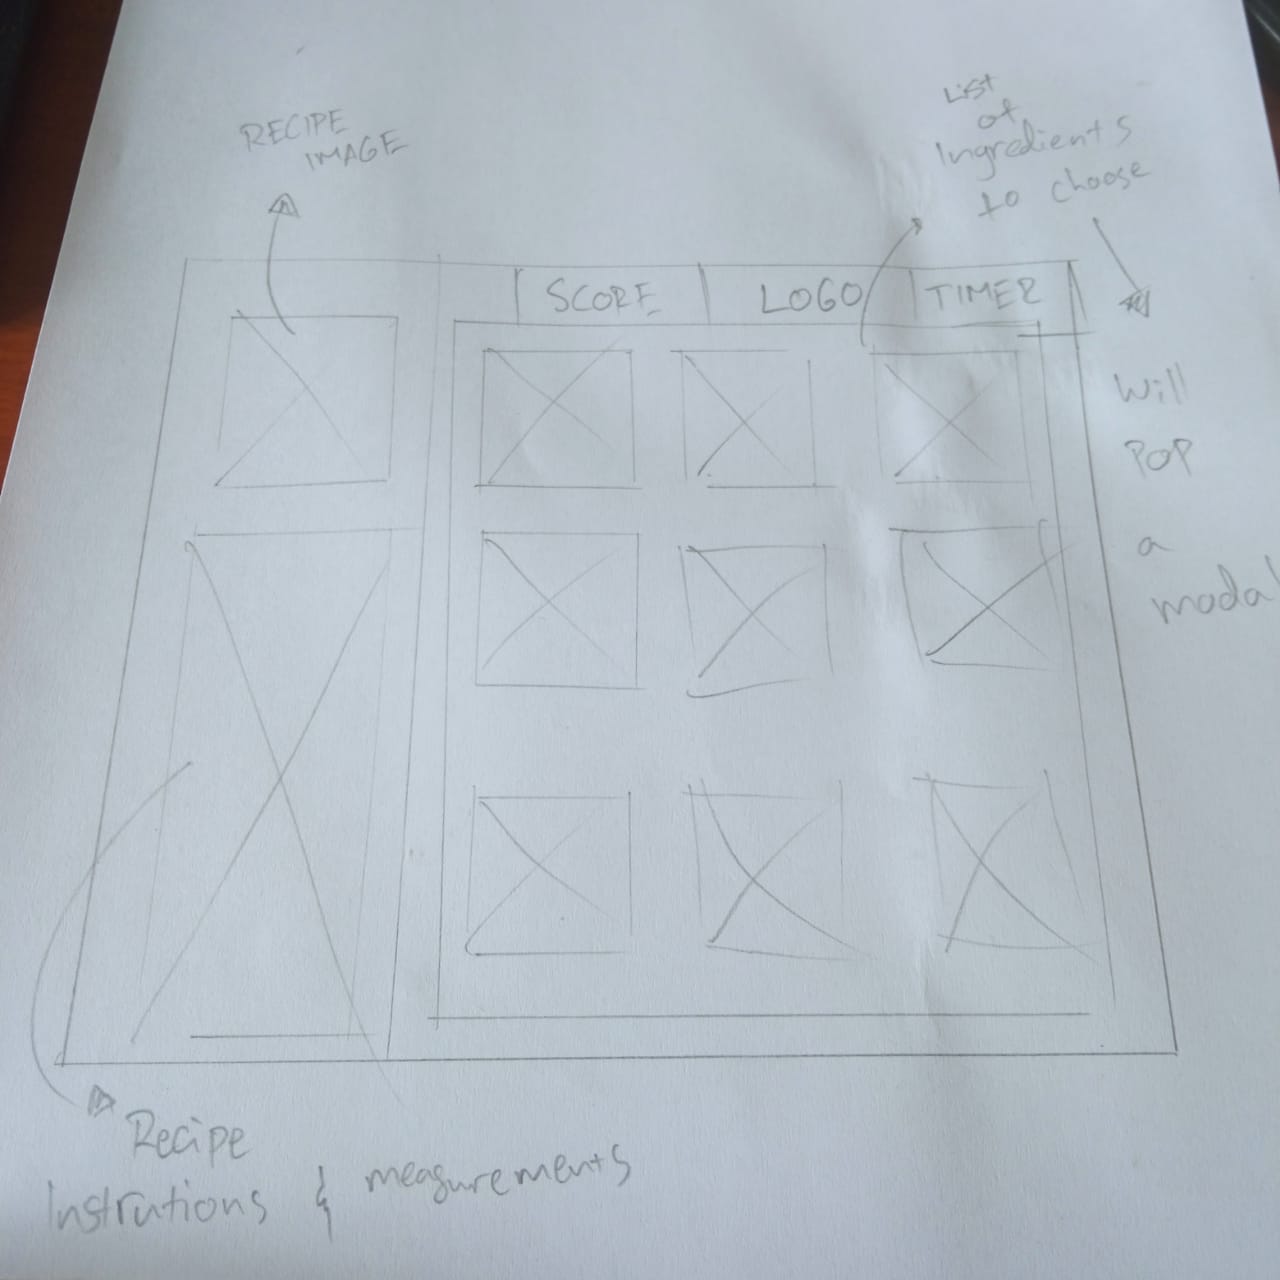 RECIPE
IMAGE
List
of
Ingredients
to choose
SCORE
LOGO
TIMER
Will
POP
a
modal
Recipe
Instrutions & measurements